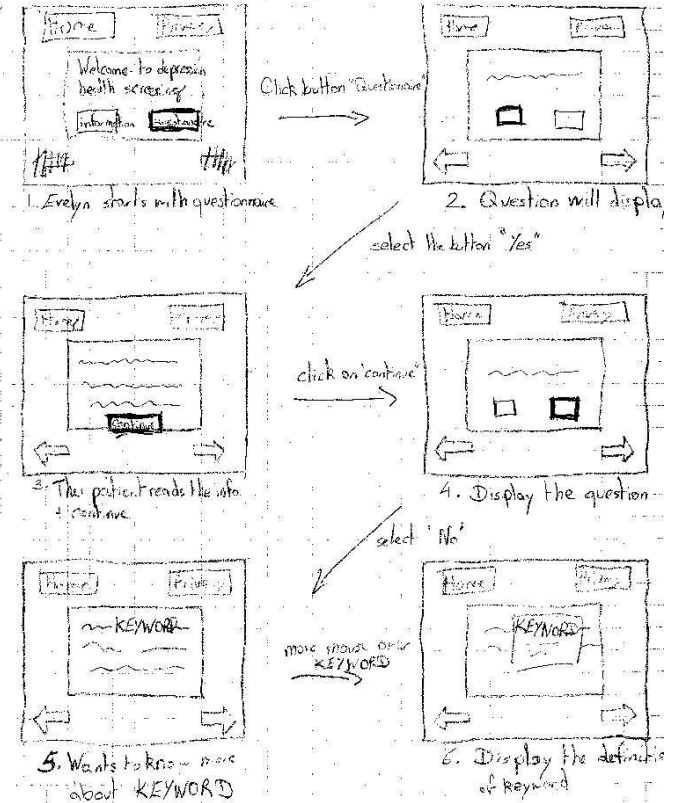 Home
Privacy
Welcome to depression
health screening
information
Questionnaire
1. Evelyn starts with questionnaire
Click button "Questionnaire"
Home
2. Question will display
select the button "Yes"
Home
Continue
3. The patient reads the info
+ continue
click on "continue"
Home
Privacy
4. Display the question
select "No"
Home
Privacy
KEYWORD
5. Wants to know more
about KEYWORD
move mouse over
KEYWORD
Home
Privacy
KEYWORD
6. Display the definition
of keyword